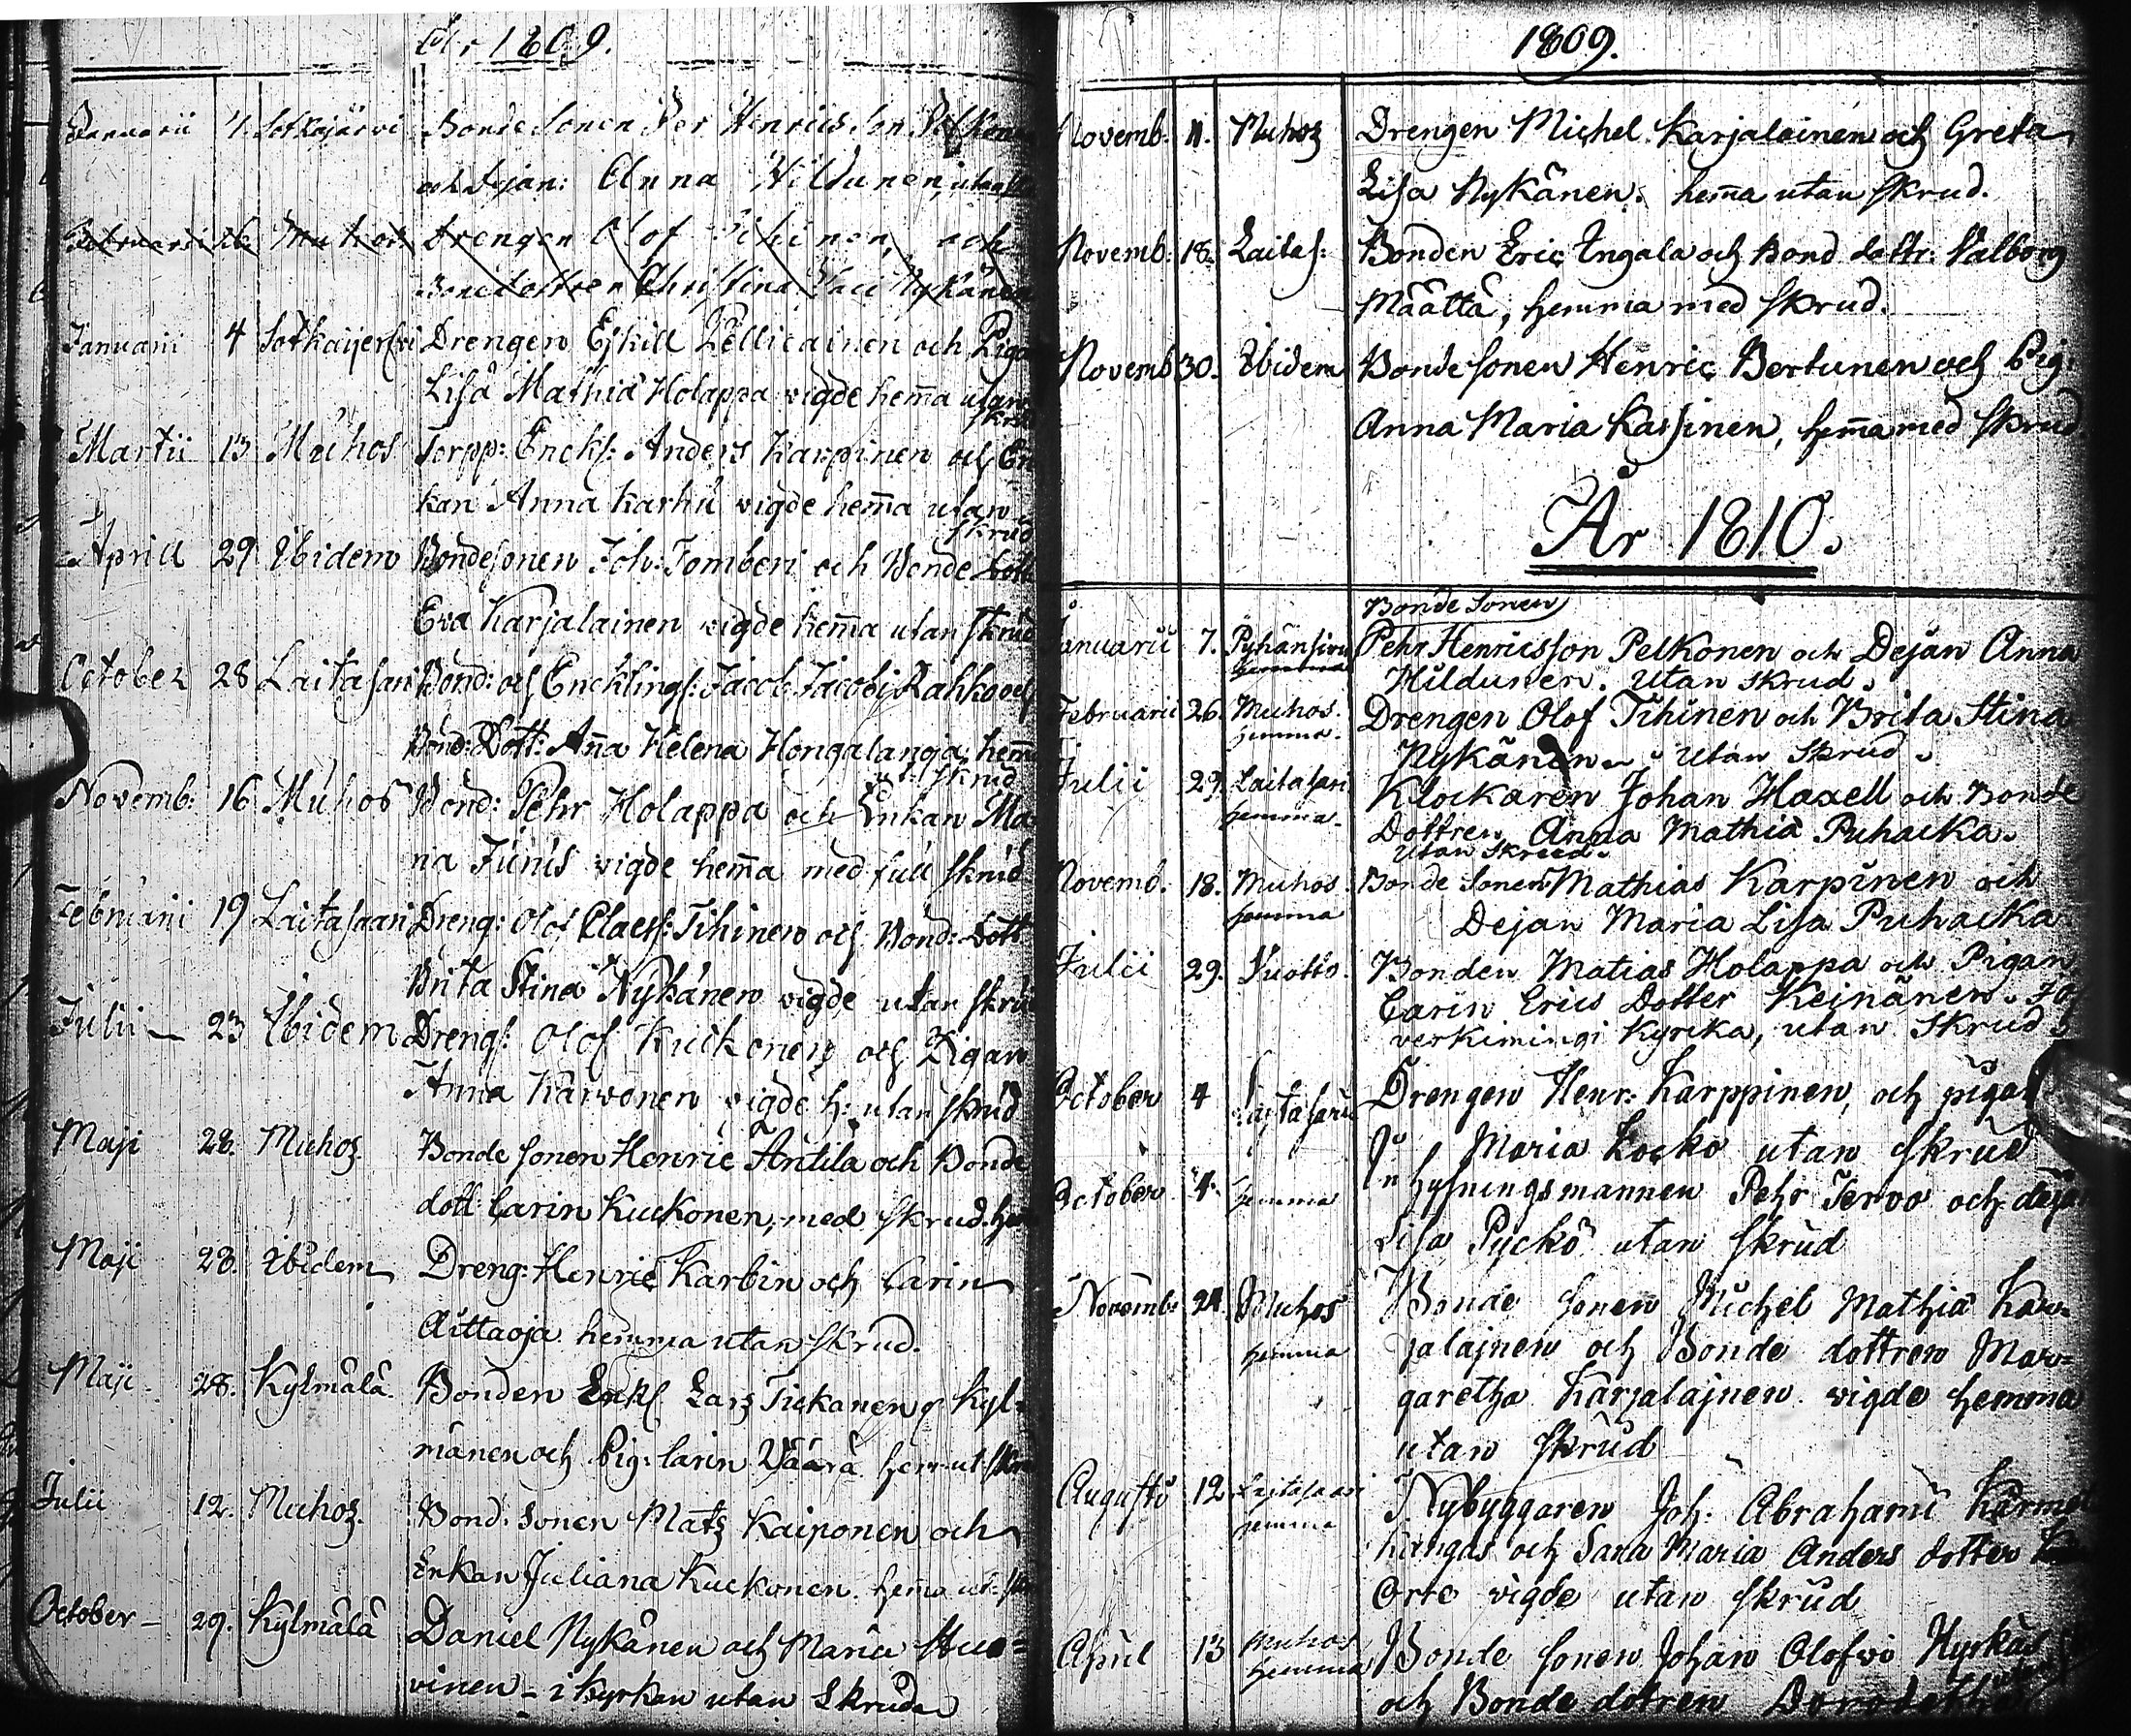 År 1809.
Januarii 4. Sotkajärvi Bonde Sonen Per Henrics Son Pelkonen
och Dejan: Anna Hildunen, utan
Februarii 26 Muhos Drengen Olof Tihinen, och
Bondedottren Christina Nykänen
Januarii 4 Sotkaijerfvi Drengen Eskill Pellicainen och Piga
Lisa Mathiæ Holappa vigde hem̄a utan
skru
Martii 13 Muhos Torpp: Enckl: Anders Karpinen och En
kan Anna Karhu vigde hem̄a utan
skrud
Aprill 29 Ibidem Bondesonen Joh: Tomberi och Bonde dott
Eva Karjalainen vigde hem̄a utan skrud
October 28 Laitasari Bond: och Encklings: Jacob Jacobi Rahko och
Bond: Dott: An̄a Helena Hongalanoja: hem̄
ut. skrud
Novemb: 16 Muhos Bond: Pehr Holappa och Enkan Ma=
ria Junis vigde hem̄a med full skrud
Februarii 19 Laitasaari Dreng: Olof Claess: Tihinen och Bond: dott
Brita Stina Nykänen vigde utan skru
Julii 23 Ibidem Drengs: Olof Kuckonen och Pigan
Anna Karvonen vigde h: utan skrud
Maji 28. Muhos. Bonde sonen Henric Antila och Bonde
dott Carin Kuckonen, med skrud. he
Maji 28. Ibidem Dreng: Henric Karbin och Carin
Aittaoja hemma utan skrud.
Maji 28. Kylmälä Bonden Enkl Lars Tickanen Kyl=
mänen och Pig: Carin Väärä hem ut skru
Julii 12. Muhos. Bond: sonen Mats Kaiponen och
Enkan Juliana Kuckonen. hem̄a ut: sk
October 29. Kylmälä Daniel Nykänen och Maria Huo=
vinen - i Kyrkan utan Skrud
1809.
Novemb. 11. Muhos Drengen Michel Karjalainen och Greta
Lisa Nykänen. hem̄a utan skrud.
Novemb: 18. Laitas: Bonden Eric Ingala och Bond dottr: Valborg
Määttä, hemma med skrud.
Novemb 30. Ibidem Bondesonen Henric Bertunen och Pig:
Anna Maria Kassinen, hem̄a med skrud
År 1810.
Bonde Sonen
Januarii 7. Pyhänsivu Pehr Henricsson Pelkonen och Dejan Anna
hemma Hildunen. utan skrud.
Februarii 26. Muhos. Drengen Olof Tihinen och Brita Stina
hemma. Nykänen. utan Skrud.
Julii 29. Laitasari Klockaren Johan Haxell och Bonde
hemma. Dottren Anna Mathiæ Puhacka.
utan Skrud.
Novemb. 18. Muhos. Bonde Sonen Mathias Karpinen och
hemma Dejan Maria Lisa Puhacka
Julii 29. Vuotto. Bonden Matias Holappa och Pigan
Carin Erics Dotter Keinänen. I Öf
verkimingi Kyrcka, utan Skrud.
October 4 Laitasari Drengen Henr: Karppinen, och pigan
Maria Kocko utan skrud
October 4. hemma Inhysningsmannen Pehr Tervo och dejan
Lisa Pyckö utan skrud
Novemb: 24. Muhos Bonde sonen Michel Mathiæ Kar=
hemma jalajnen och Bonde dottren Mar=
garetha Karjalajnen vigde hemma
utan skrud
Augusti 12 Laitasaari Nybyggaren Joh: Abrahami Kärme
hemma kangas och Sara Maria Anders dotter
Orre vigde utan skrud
April 13 Muhos Bonde sonen Johan Olofvi Hyrkäs
hemma och Bonde dotren Dorodetha